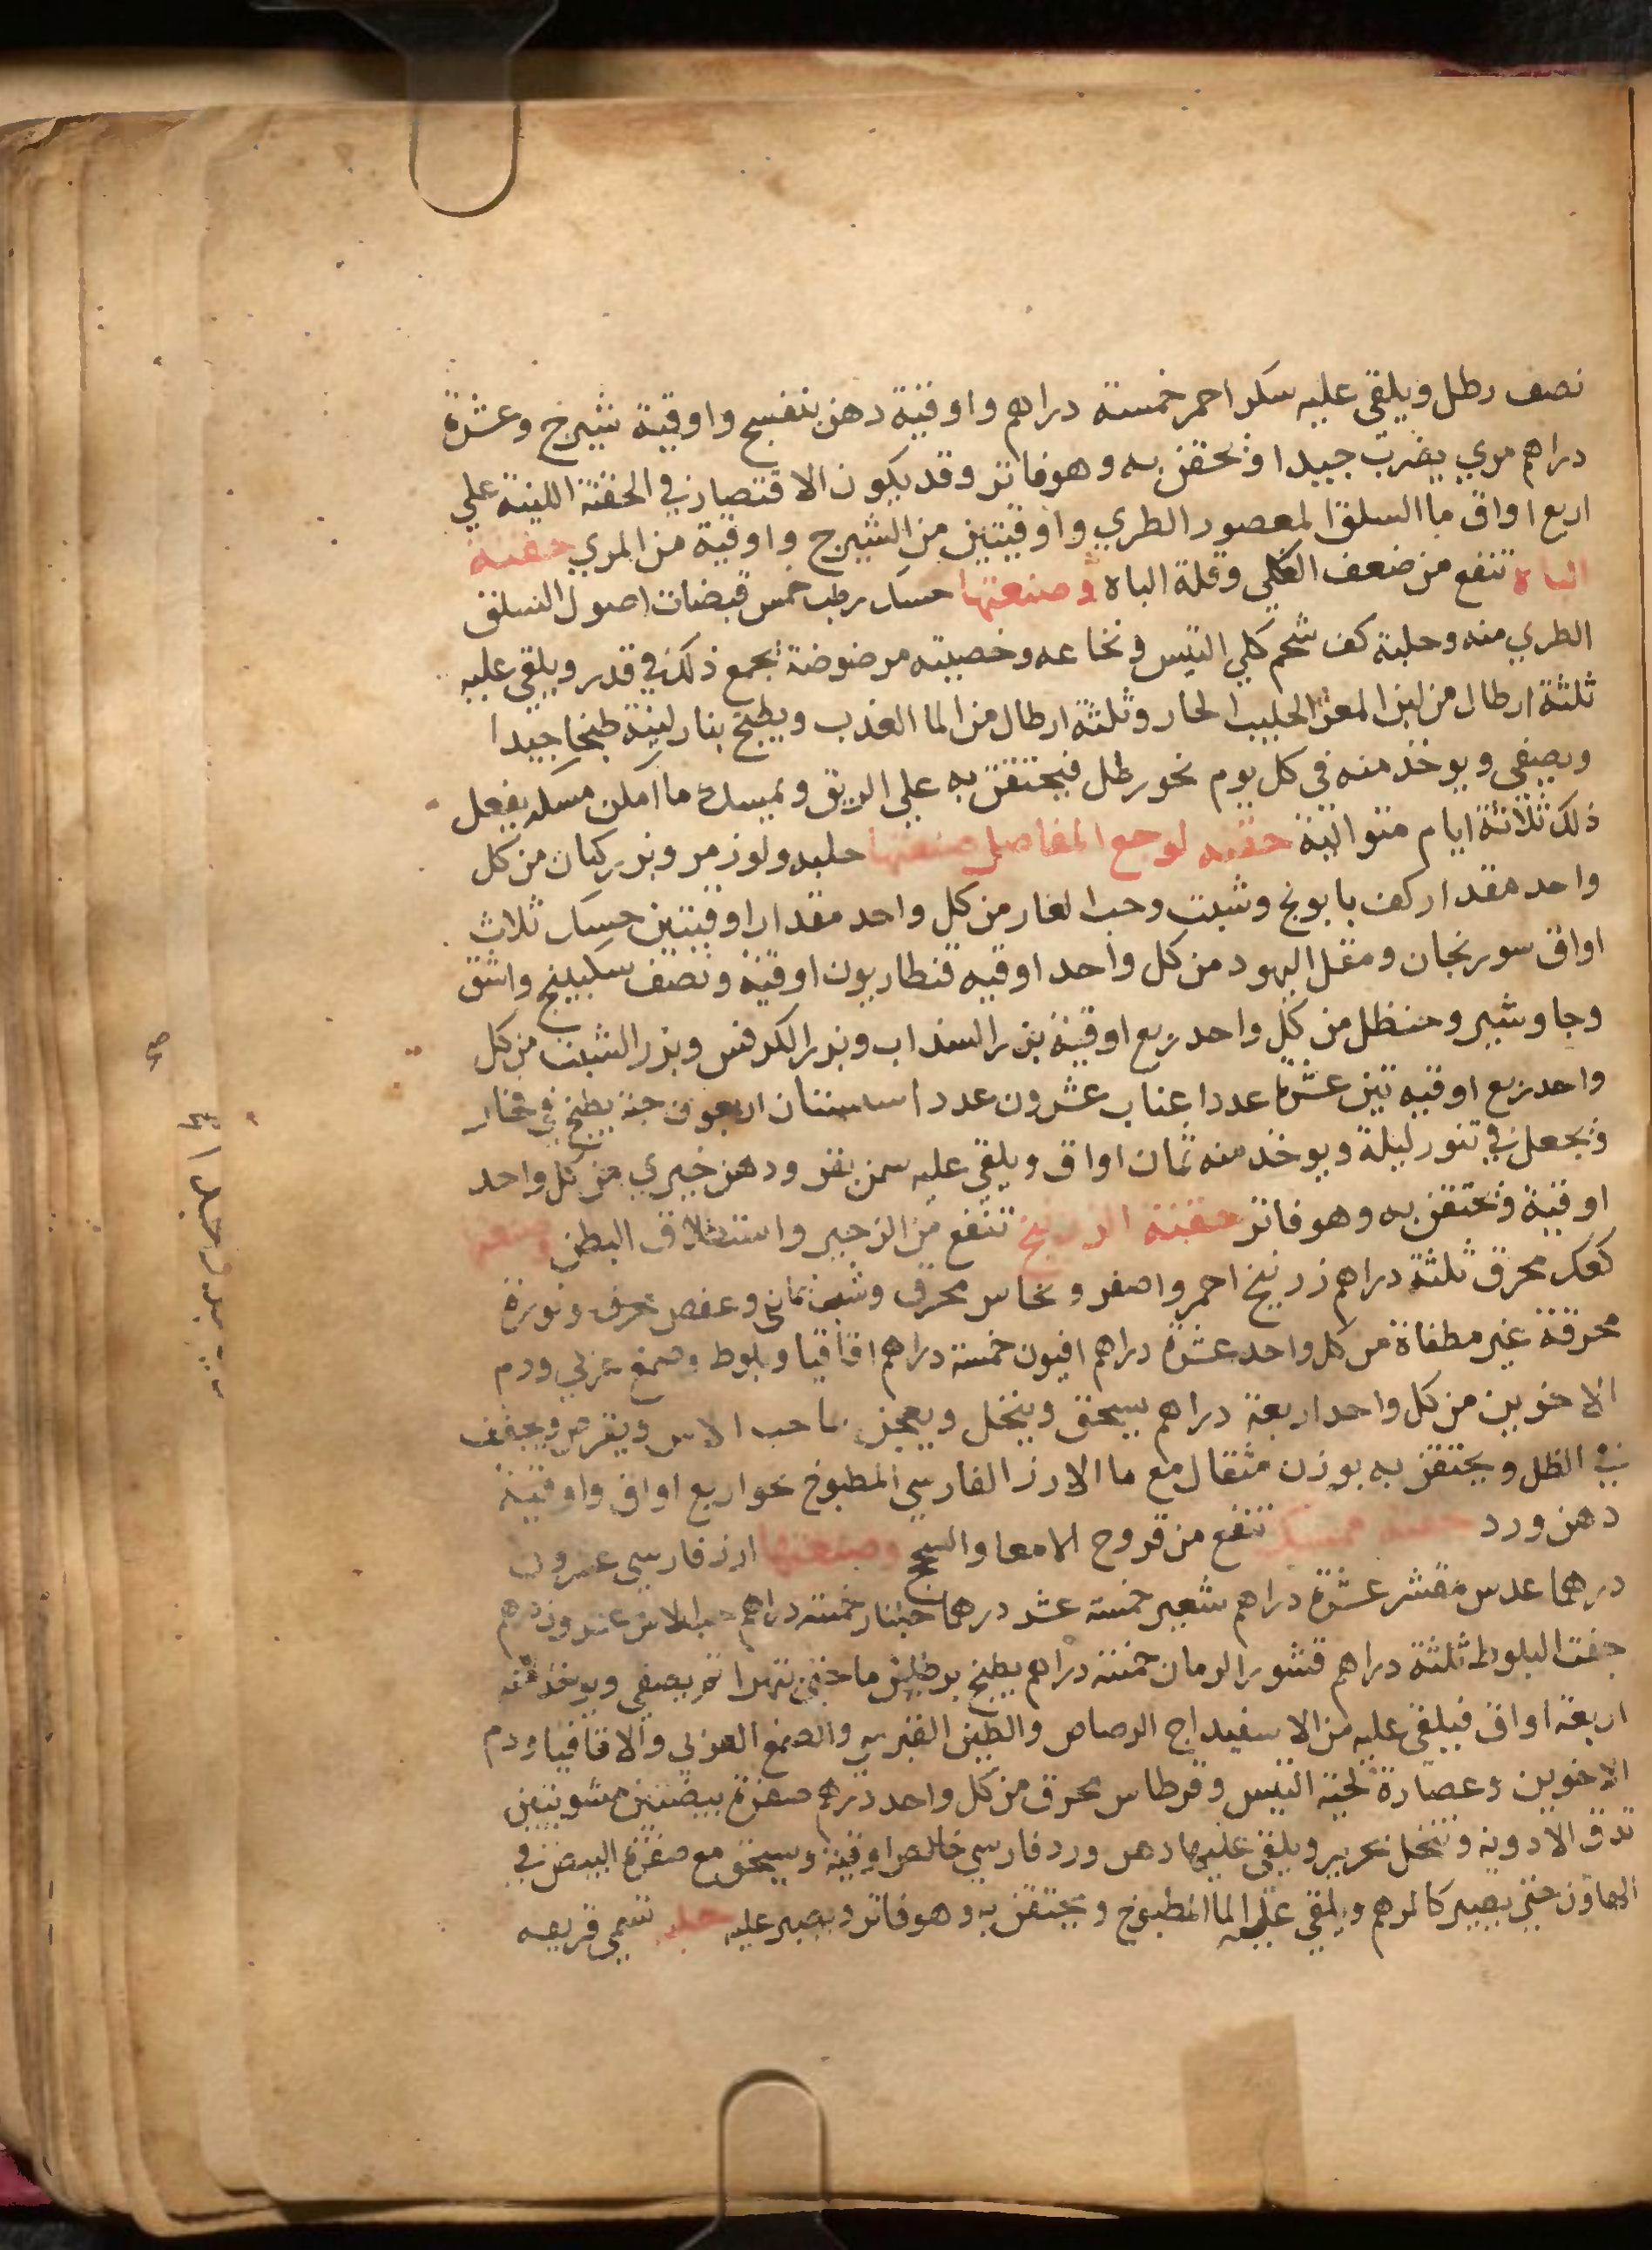 نصف رطل ويلقى عليه سكر احمر خمسة دراهم واوقية دهن بنفسج واوقية شيرج وعشرة
دراهم مري يضرب جيدا ويحقن به وهو فاتر وقد يكون الاقتصار في الحقنة اللينة علي
اربع اواق ما السلق المعصور الطري واوقيتين من الشيرج واوقية من المري حقنة
الباه تنفع من ضعف الكلي وقلة الباه وصنعتها حسك رطب خمس قبضات اصول السلق
الطري منه وحلبة كف شحم كلي التيس ونخاعه وخصيته مرضوضة يجمع ذلك في قدر ويلقى عليه
ثلثة ارطال من لبن المعز الحليب الحار وثلثة ارطال من الما العذب ويطبخ بنار لينة طبخا جيدا
ويصفى ويوخذ منه في كل يوم نحو رطل فيحتقن به علي الريق ويمسك ما امكن مسكه يفعل
ذلك ثلاثة ايام متوالية حقنه لوجع المفاصل صنعتها حلبه ولوز مر وبزر كتان من كل
واحد مقدار كف بابونج وشبت وحب الغار من كل واحد مقدار اوقيتين حسك ثلاث
اواق سورنجان ومقل اليهود من كل واحد اوقيه قنطاريون اوقية ونصف سكبينج واشق
وجاوشير وحنظل من كل واحد ربع اوقية بزر السداب وبزر الكرفس وبزر الشبت من كل
واحد ربع اوقيه تين عشرة عددا عناب عشرون عددا سبستان اربعون حبة يطبخ في فخار
ويجعل في تنور ليلة ويوخذ منه ثمان اواق ويلقى عليه سمن بقر ودهن خيري من كل واحد
اوقية ويحتقن به وهو فاتر حقنة الزرنيخ تنفع من الزحير واستطلاق البطن وصنعتها
كعك محرق ثلثة دراهم زرنيخ احمر واصفر ونحاس محرق وشب يماني وعفص محرق ونورة
محرقة غير مطفاة من كل واحد عشرة دراهم افيون خمسة دراهم اقاقيا وبلوط وصمغ عربي ودم
الاخوين من كل واحد اربعة دراهم يسحق وينخل ويعجن بما حب الاس ويقرص ويجفف
في الظل ويحتقن به بوزن مثقال مع ما الارز الفارسي المطبوخ نحو اربع اواق واوقية
دهن ورد حقنه ممسكه تنفع من قروح الامعا والسحج وصنعتها ارز فارسي عشرون
درهما عدس مقشر عشرة دراهم شعير خمسة عشر درهما جلنار خمسة دراهم حب الاس عشرون درهم
جفت البلوط ثلثة دراهم قشور الرمان خمسة دراهم يطبخ برطلين ما حتى يتهرا ثم يصفى ويوخذ منه
اربعة اواق فيلقى عليه من الاسفيداج الرصاص والطين القبرسي والصمغ العربي والاقاقيا ودم
الاخوين وعصارة لحية التيس وقرطاس محرق من كل واحد درهم صفرة بيضتين مشويتين
تدق الادوية وتنخل بحرير ويلقى عليها دهن ورد فارسي خالص اوقية ويسحق مع صفرة البيض في
الهاون حتى يصير كالمرهم ويلقى عليه الما المطبوخ ويحتقن به وهو فاتر ويصبر عليه